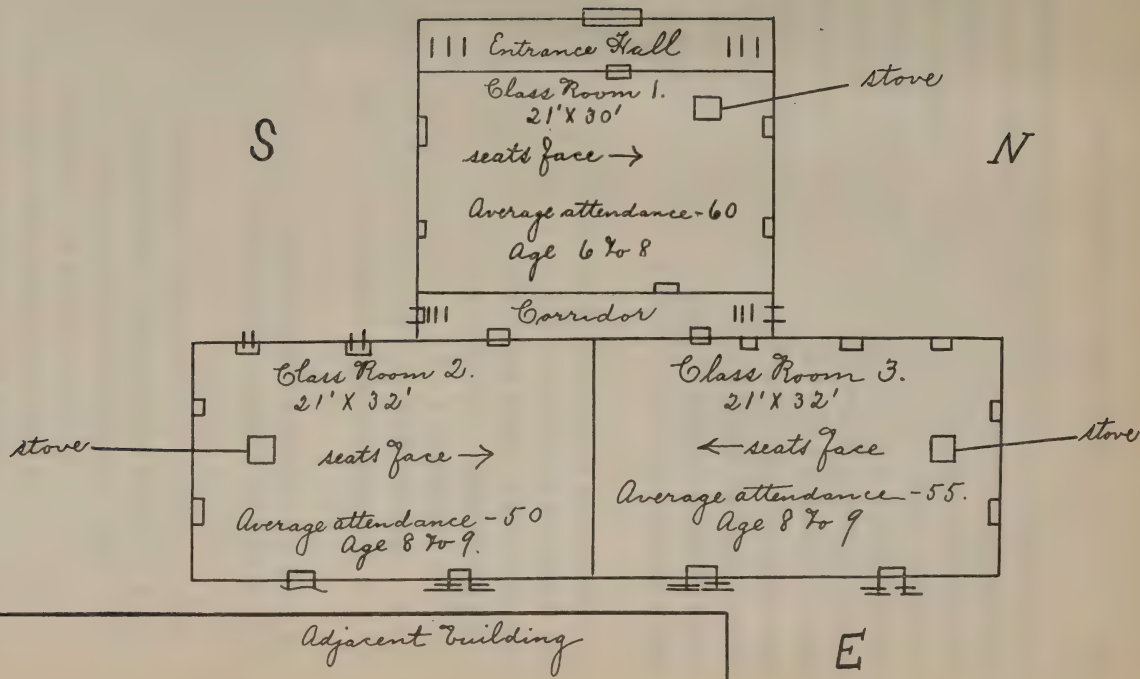 Entrance Hall
stove
Class Room 1.
21' X 30'
S
N
seats face →
Average attendance - 60
Age 6 to 8
Corridor
Class Room 2.
21' X 32'
stove
seats face →
Average attendance - 50
Age 8 to 9.
Class Room 3.
21' X 32'
← seats face
stove
Average attendance - 55.
Age 8 to 9
Adjacent Building
E